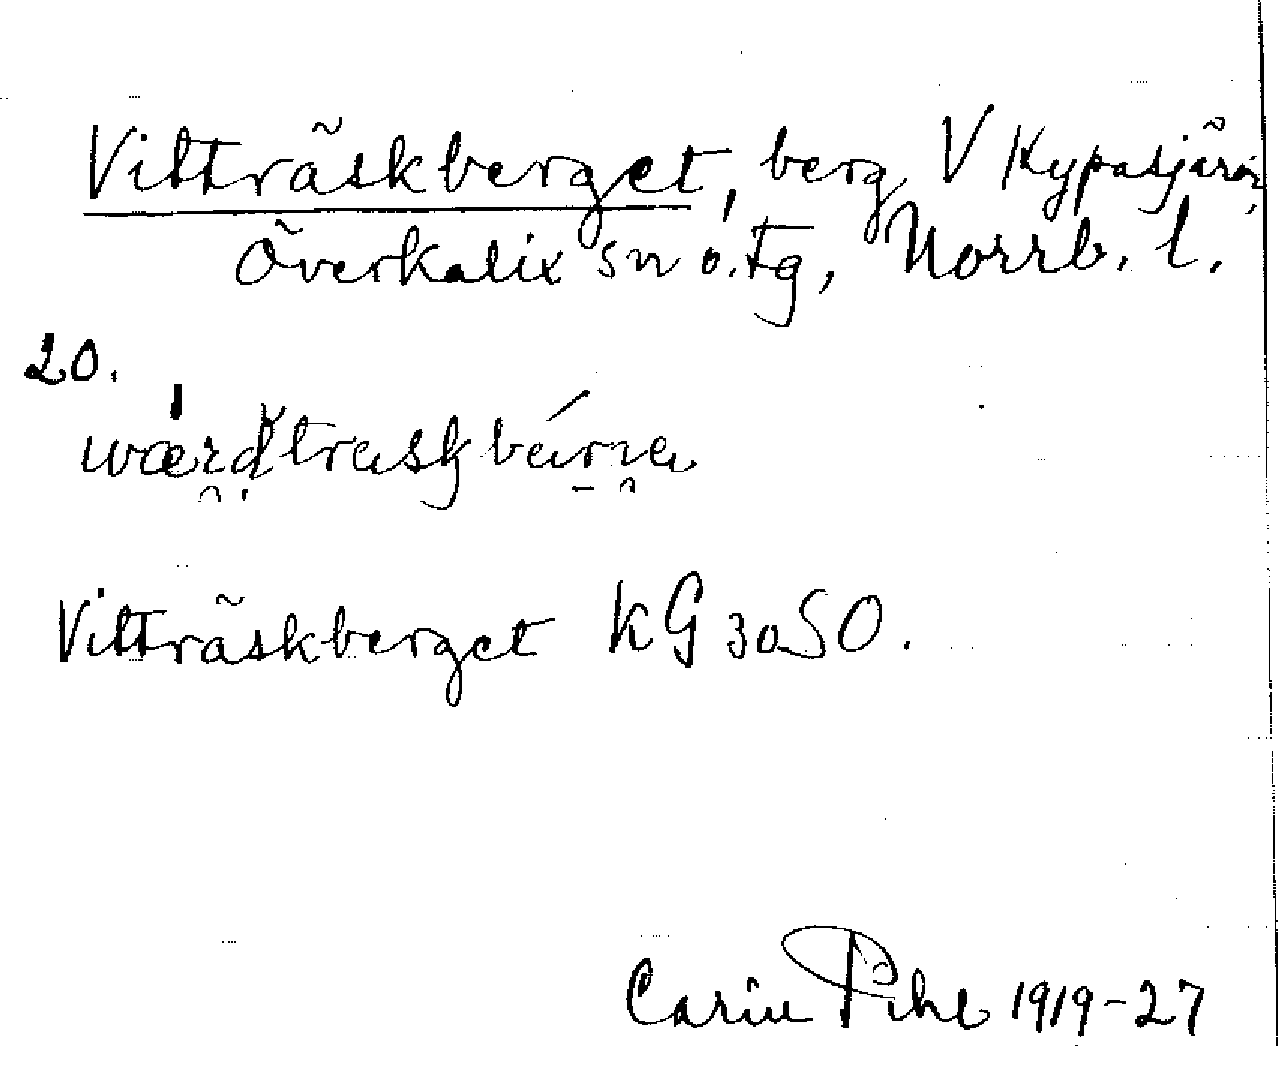 Vitträskberget, berg V Kypasjärvi,
Överkalix sn o. tg, Norrb. l.
20.
Vitträskberget KG 30 SO.
Carin Pihl 1919-27